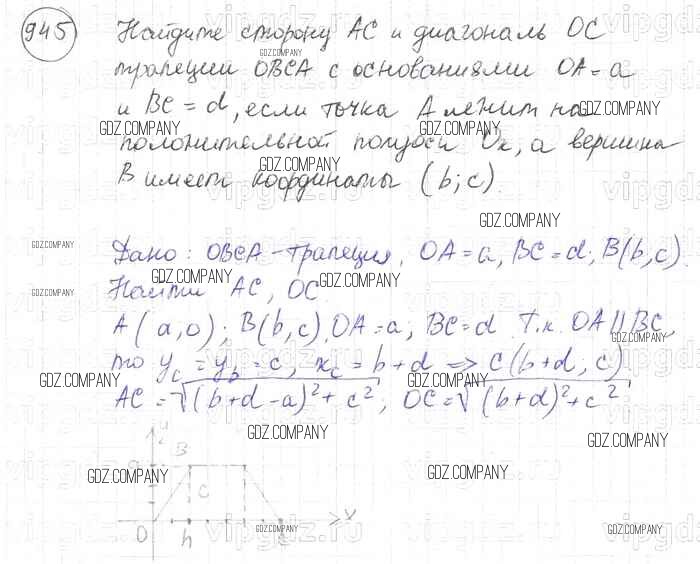 945 Найдите сторону AC и диагональ OC
трапеции OBCA с основаниями OA = a
и BC = d, если точка A лежит на
положительной полуоси Ox, а вершина
B имеет координаты (b; c).
Дано: OBCA - трапеция, OA = a, BC = d, B(b, c).
Найти AC, OC
A(a, 0); B(b, c), OA = a, BC = d. Т.к. OA || BC,
то y_c = y_b = c, x_c = b + d => C(b + d, c)
AC = √(b + d - a)² + c², OC = √(b + d)² + c²
y
B
C
O h x
GDZ.COMPANY
vipgdz.ru